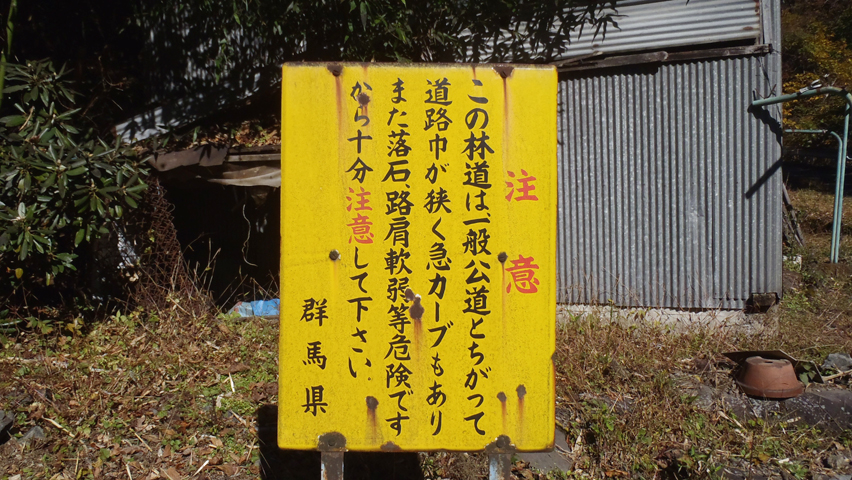 注意
この林道は、一般公道とちがって
道路巾が狭く急カーブもあり
また落石、路肩軟弱等危険です
から十分注意して下さい。
群馬県